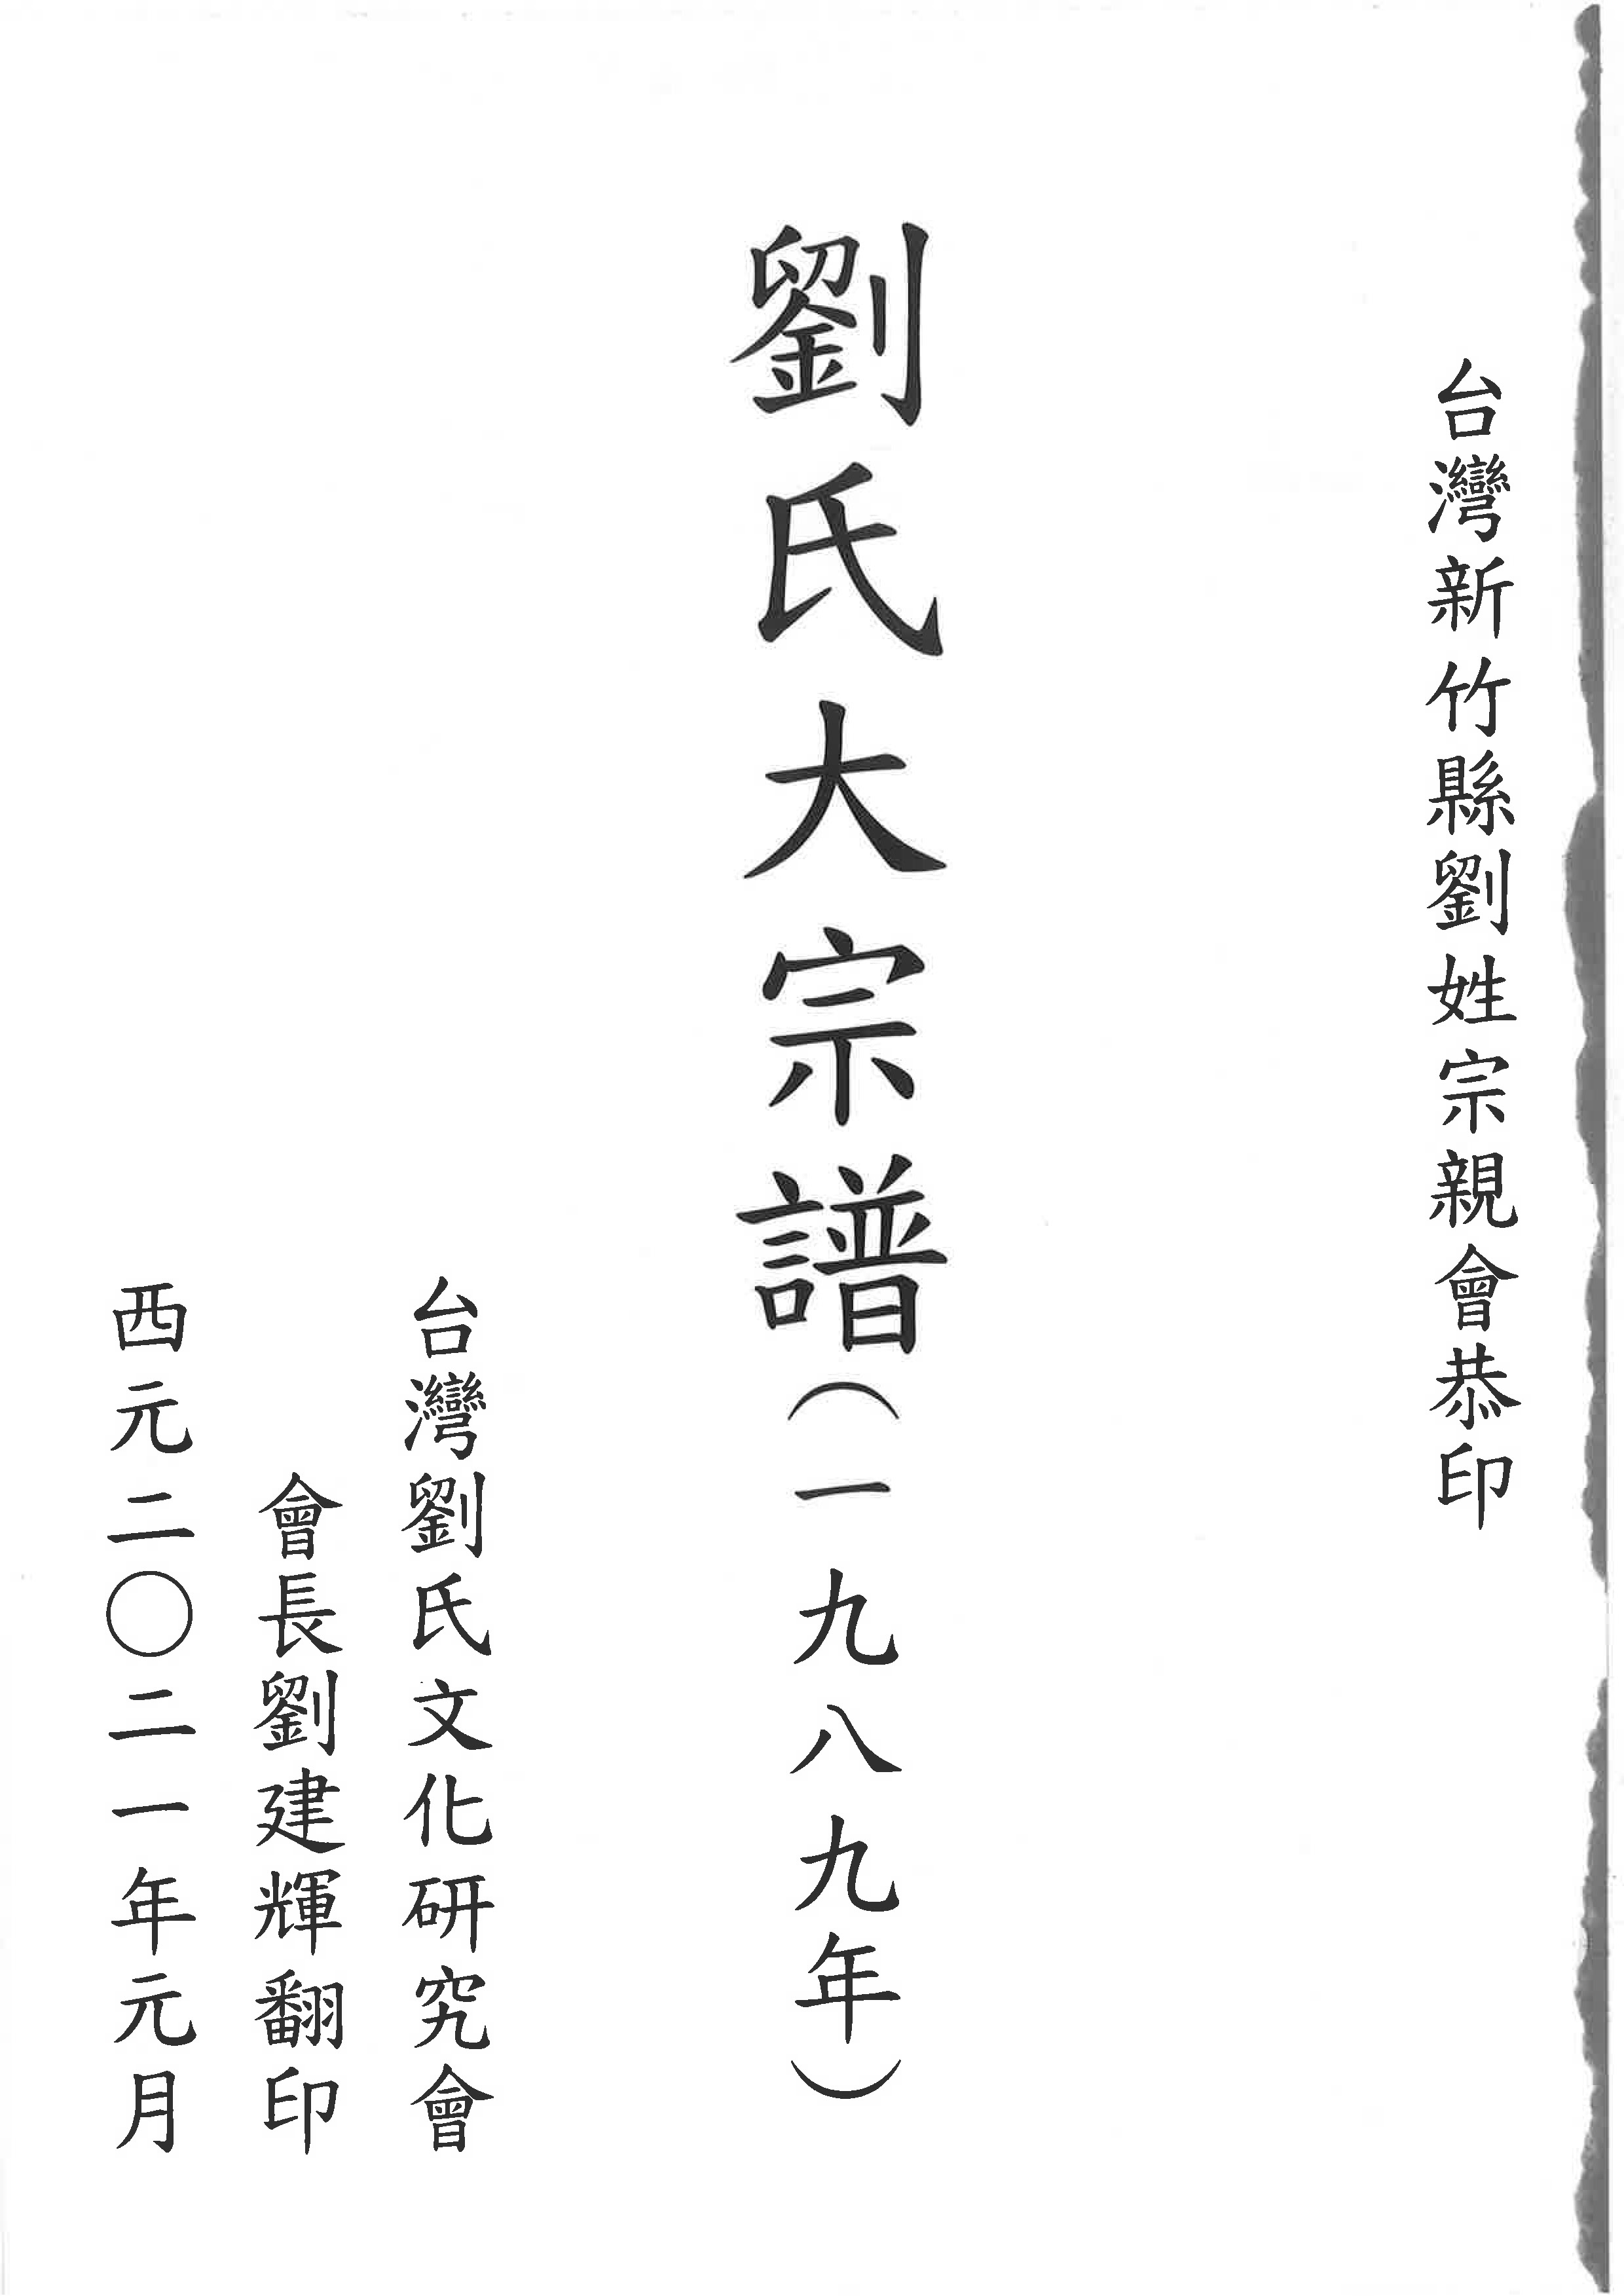 台灣新竹縣劉姓宗親會恭印
劉氏大宗譜（一九八九年）
台灣劉氏文化研究會
會長劉建輝翻印
西元二〇二一年元月